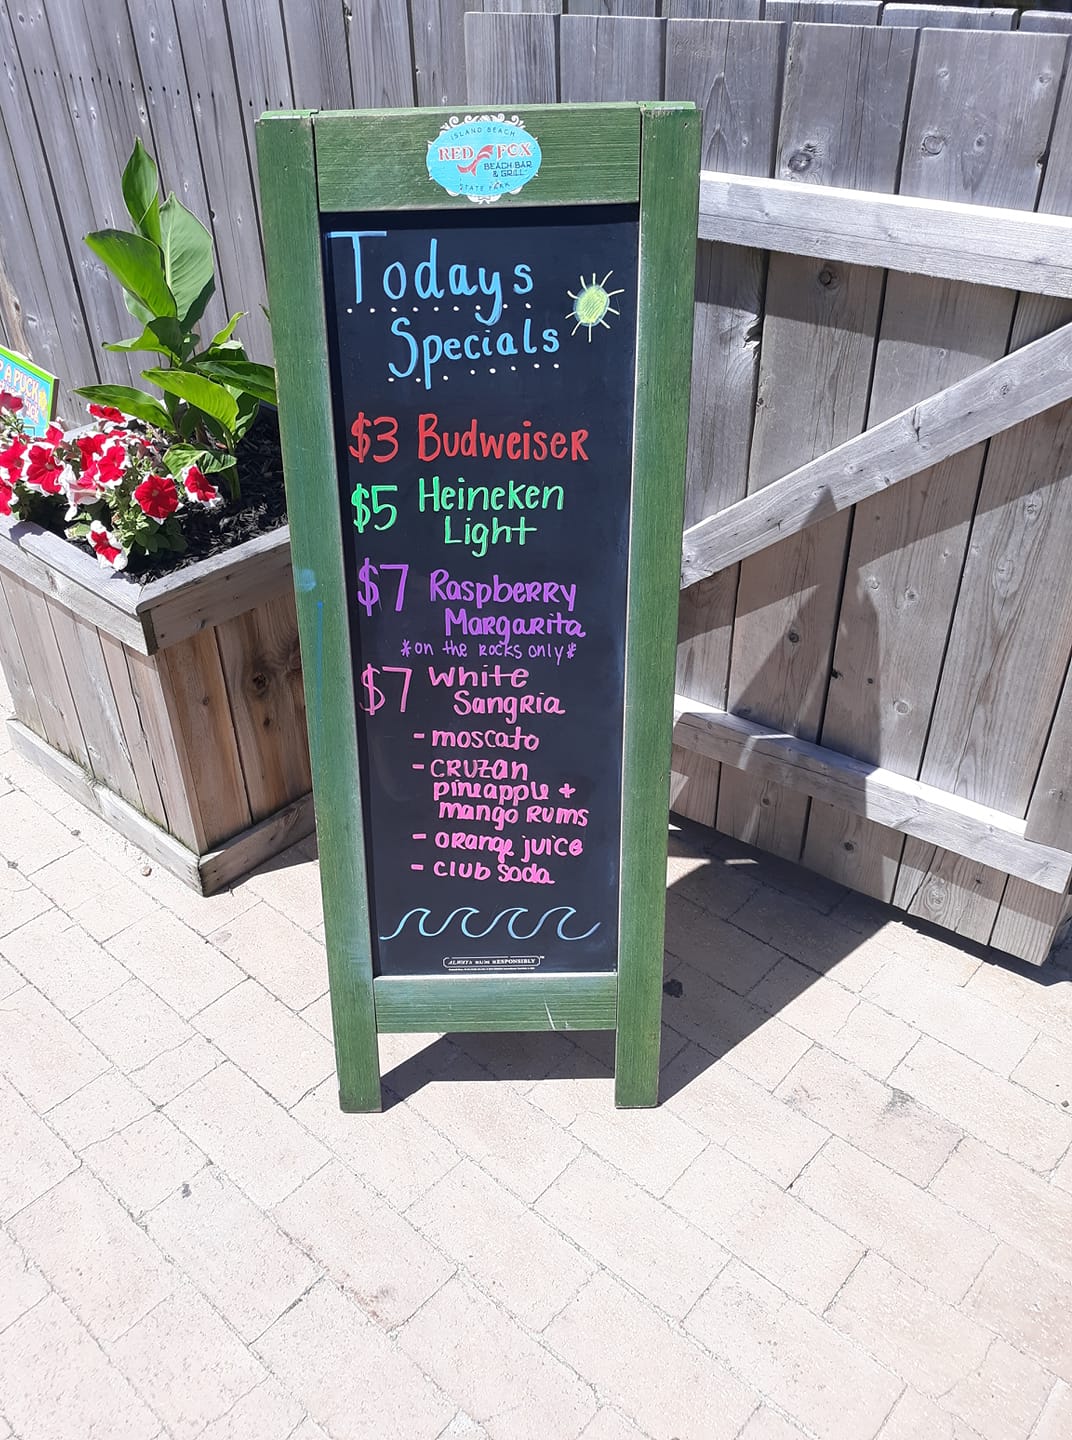 ISLAND BEACH
RED FOX
BEACH BAR
& GRILL
STATE PARK
Todays
Specials
$3 Budweiser
$5 Heineken
Light
$7 Raspberry
Margarita
*on the rocks only*
$7 White
Sangria
- moscato
- CRUZAN
pineapple +
mango Rums
- orange juice
- club soda
ALWAYS RUM RESPONSIBLY
A PUCK